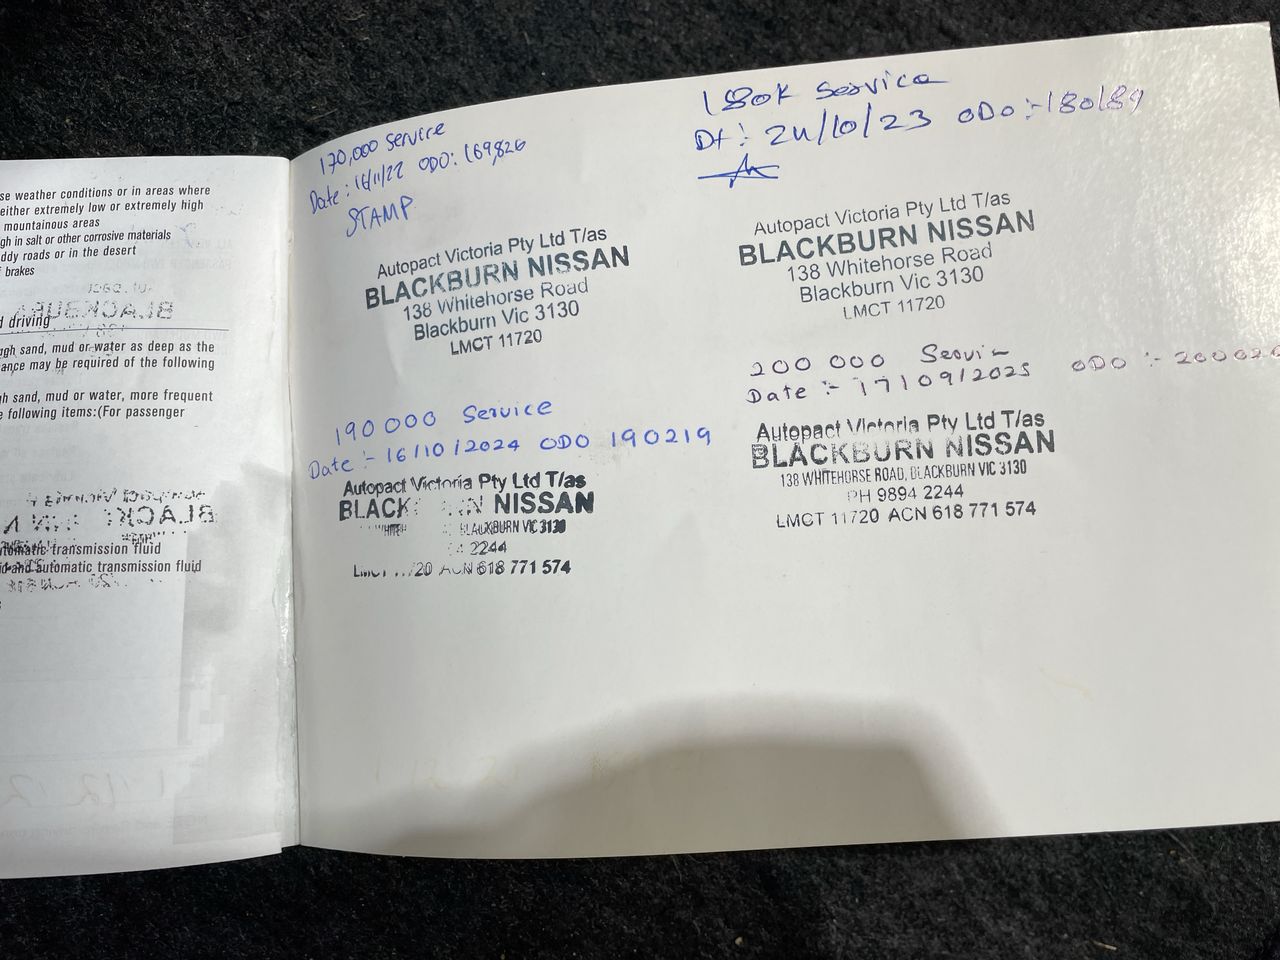 se weather conditions or in areas where
either extremely low or extremely high
mountainous areas
gh in salt or other corrosive materials
ddy roads or in the desert
brakes
d driving
gh sand, mud or water as deep as the
ance may be required of the following
gh sand, mud or water, more frequent
e following items:(For passenger
tomatic transmission fluid
id and automatic transmission fluid
170,000 Service
Date: 16/11/22 ODO: 169,826
STAMP
Autopact Victoria Pty Ltd T/as
BLACKBURN NISSAN
138 Whitehorse Road
Blackburn Vic 3130
LMCT 11720
190000 Service
Date :- 16/10/2024 ODO 190219
Autopact Victoria Pty Ltd T/as
BLACKBURN NISSAN
BLACKBURN VIC 3130
2244
LMCT 11720 ACN 618 771 574
180K Service
Dt :- 24/10/23 ODO :- 180189
Autopact Victoria Pty Ltd T/as
BLACKBURN NISSAN
138 Whitehorse Road
Blackburn Vic 3130
LMCT 11720
200 000 Servi
Date :- 17/09/2025 ODO :- 200020
Autopact Victoria Pty Ltd T/as
BLACKBURN NISSAN
138 WHITEHORSE ROAD, BLACKBURN VIC 3130
PH 9894 2244
LMCT 11720 ACN 618 771 574